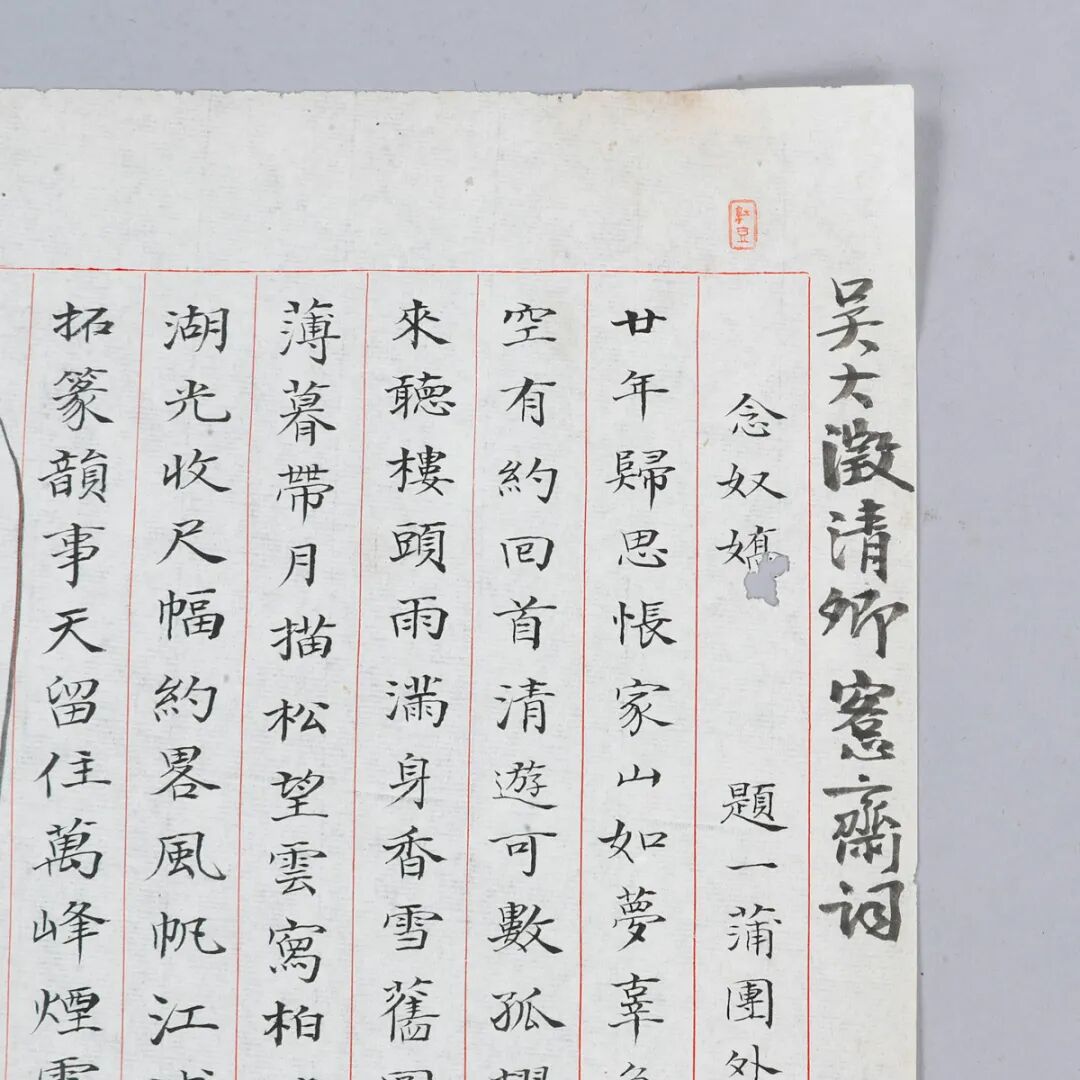 吳大澂清卿愙齋詞
紅豆
念奴嬌 題一蒲團外
廿年歸思悵家山如夢辜
空有約回首清遊可數孤
來聽樓頭雨滿身香雪舊
薄暮帶月描松望雲寫柏
湖光收尺幅約畧風帆江
拓篆韻事天留住萬峰煙